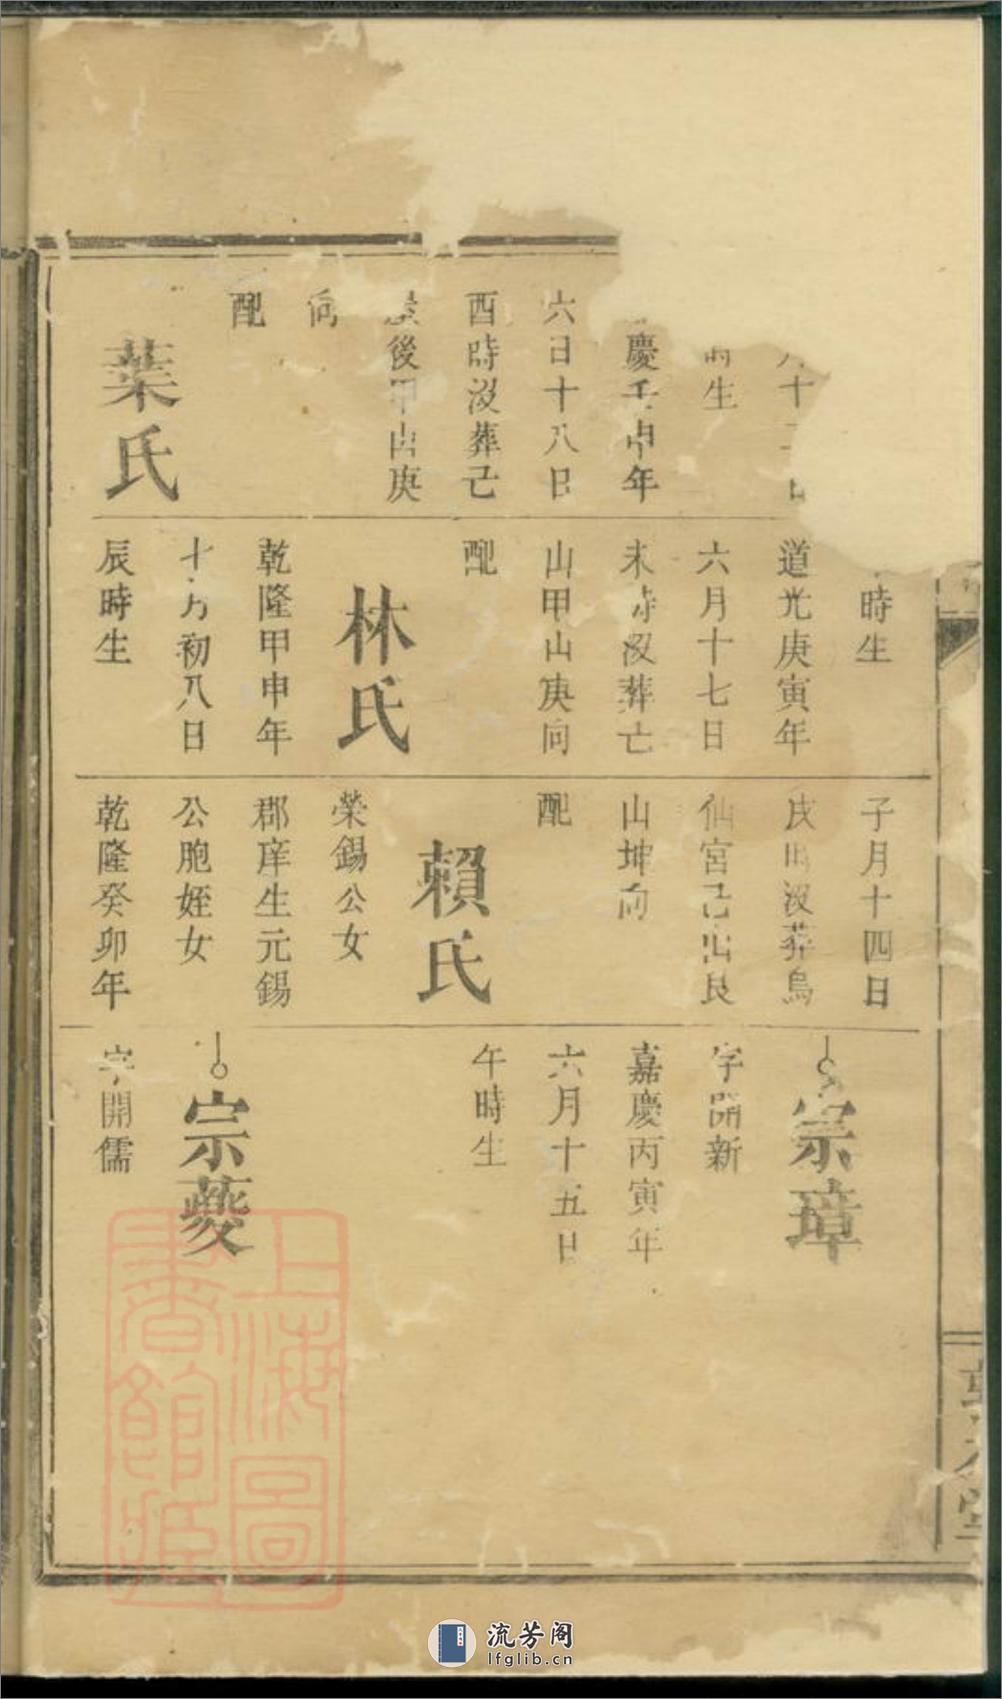 十
生
慶壬申年
六日十八日
酉時沒葬己
後甲山庚
向
配
葉氏
時生
道光庚寅年
六月十七日
未時沒葬亡
山甲山庚向
配
林氏
乾隆甲申年
十月初八日
辰時生
子月十四日
戌時沒葬烏
仙宮己山艮
山坤向
配
賴氏
榮錫公女
郡庠生元錫
公胞姪女
乾隆癸卯年
宗璋
字開新
嘉慶丙寅年
六月十五日
午時生
宗夔
字開儒
上海圖
書館藏
流芳阁
lfglib.cn